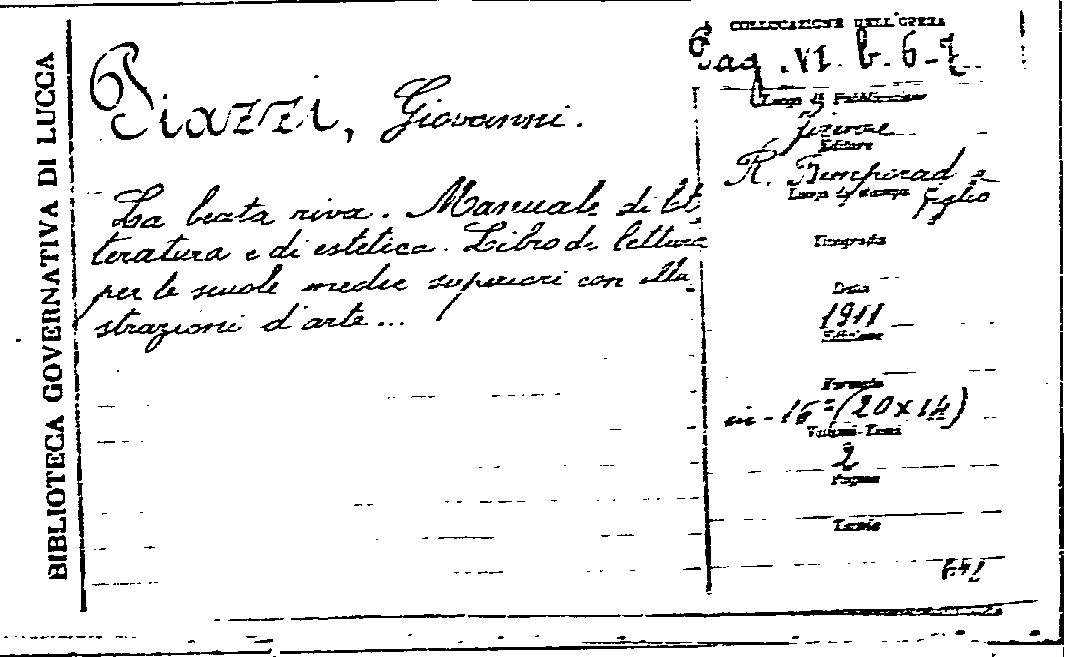 BIBLIOTECA GOVERNATIVA DI LUCCA
Piazzi, Giovanni.
La beata riva. Manuale di let
teratura e di estetica. Libro di lettura
per le scuole medie superiori con illu_
strazioni d'arte...
COLLOCAZIONE DELL'OPERA
Pag. VI. b. 6-7
Luogo di Pubblicazione
Firenze
Editore
R. Bemporad e
Luogo di stampa
figlio
Tipografia
Data
1911
Edizione
Formato
in-16º (20x14)
Volumi-Tomi
2
Pagine
Tavole